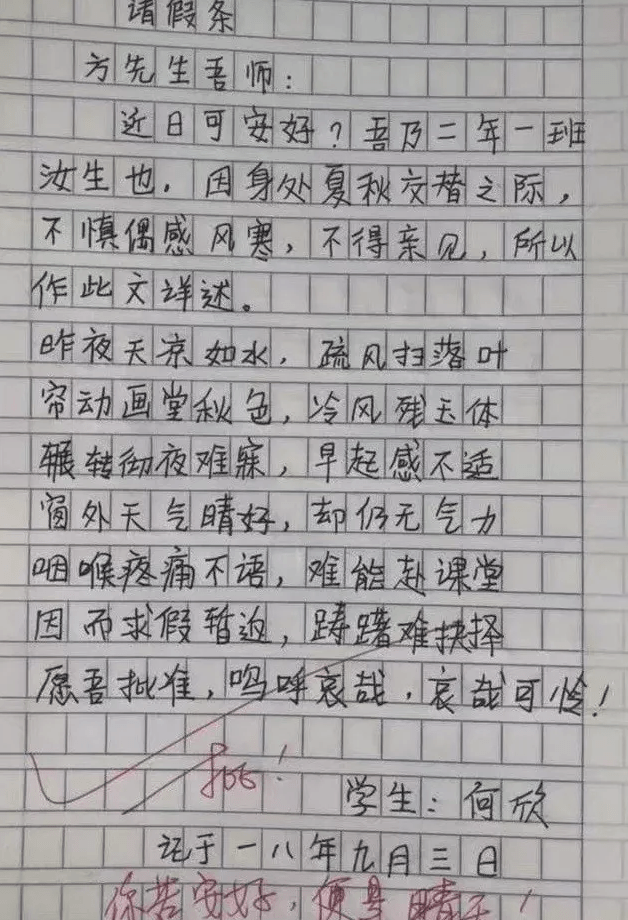 请假条
方先生吾师：
近日可安好？吾乃二年一班
汝生也，因身处夏秋交替之际，
不慎偶感风寒，不得亲见，所以
作此文详述。
昨夜天凉如水，疏风扫落叶
帘动画堂秋色，冷风残玉体
辗转彻夜难寐，早起感不适
窗外天气晴好，却仍无气力
咽喉疼痛不语，难能赴课堂
因而求假暂迫，踌躇难抉择
愿吾批准，呜呼哀哉，哀哉可怜！
批！
学生：何欣
记于一八年九月三日
你若安好，便是晴天！